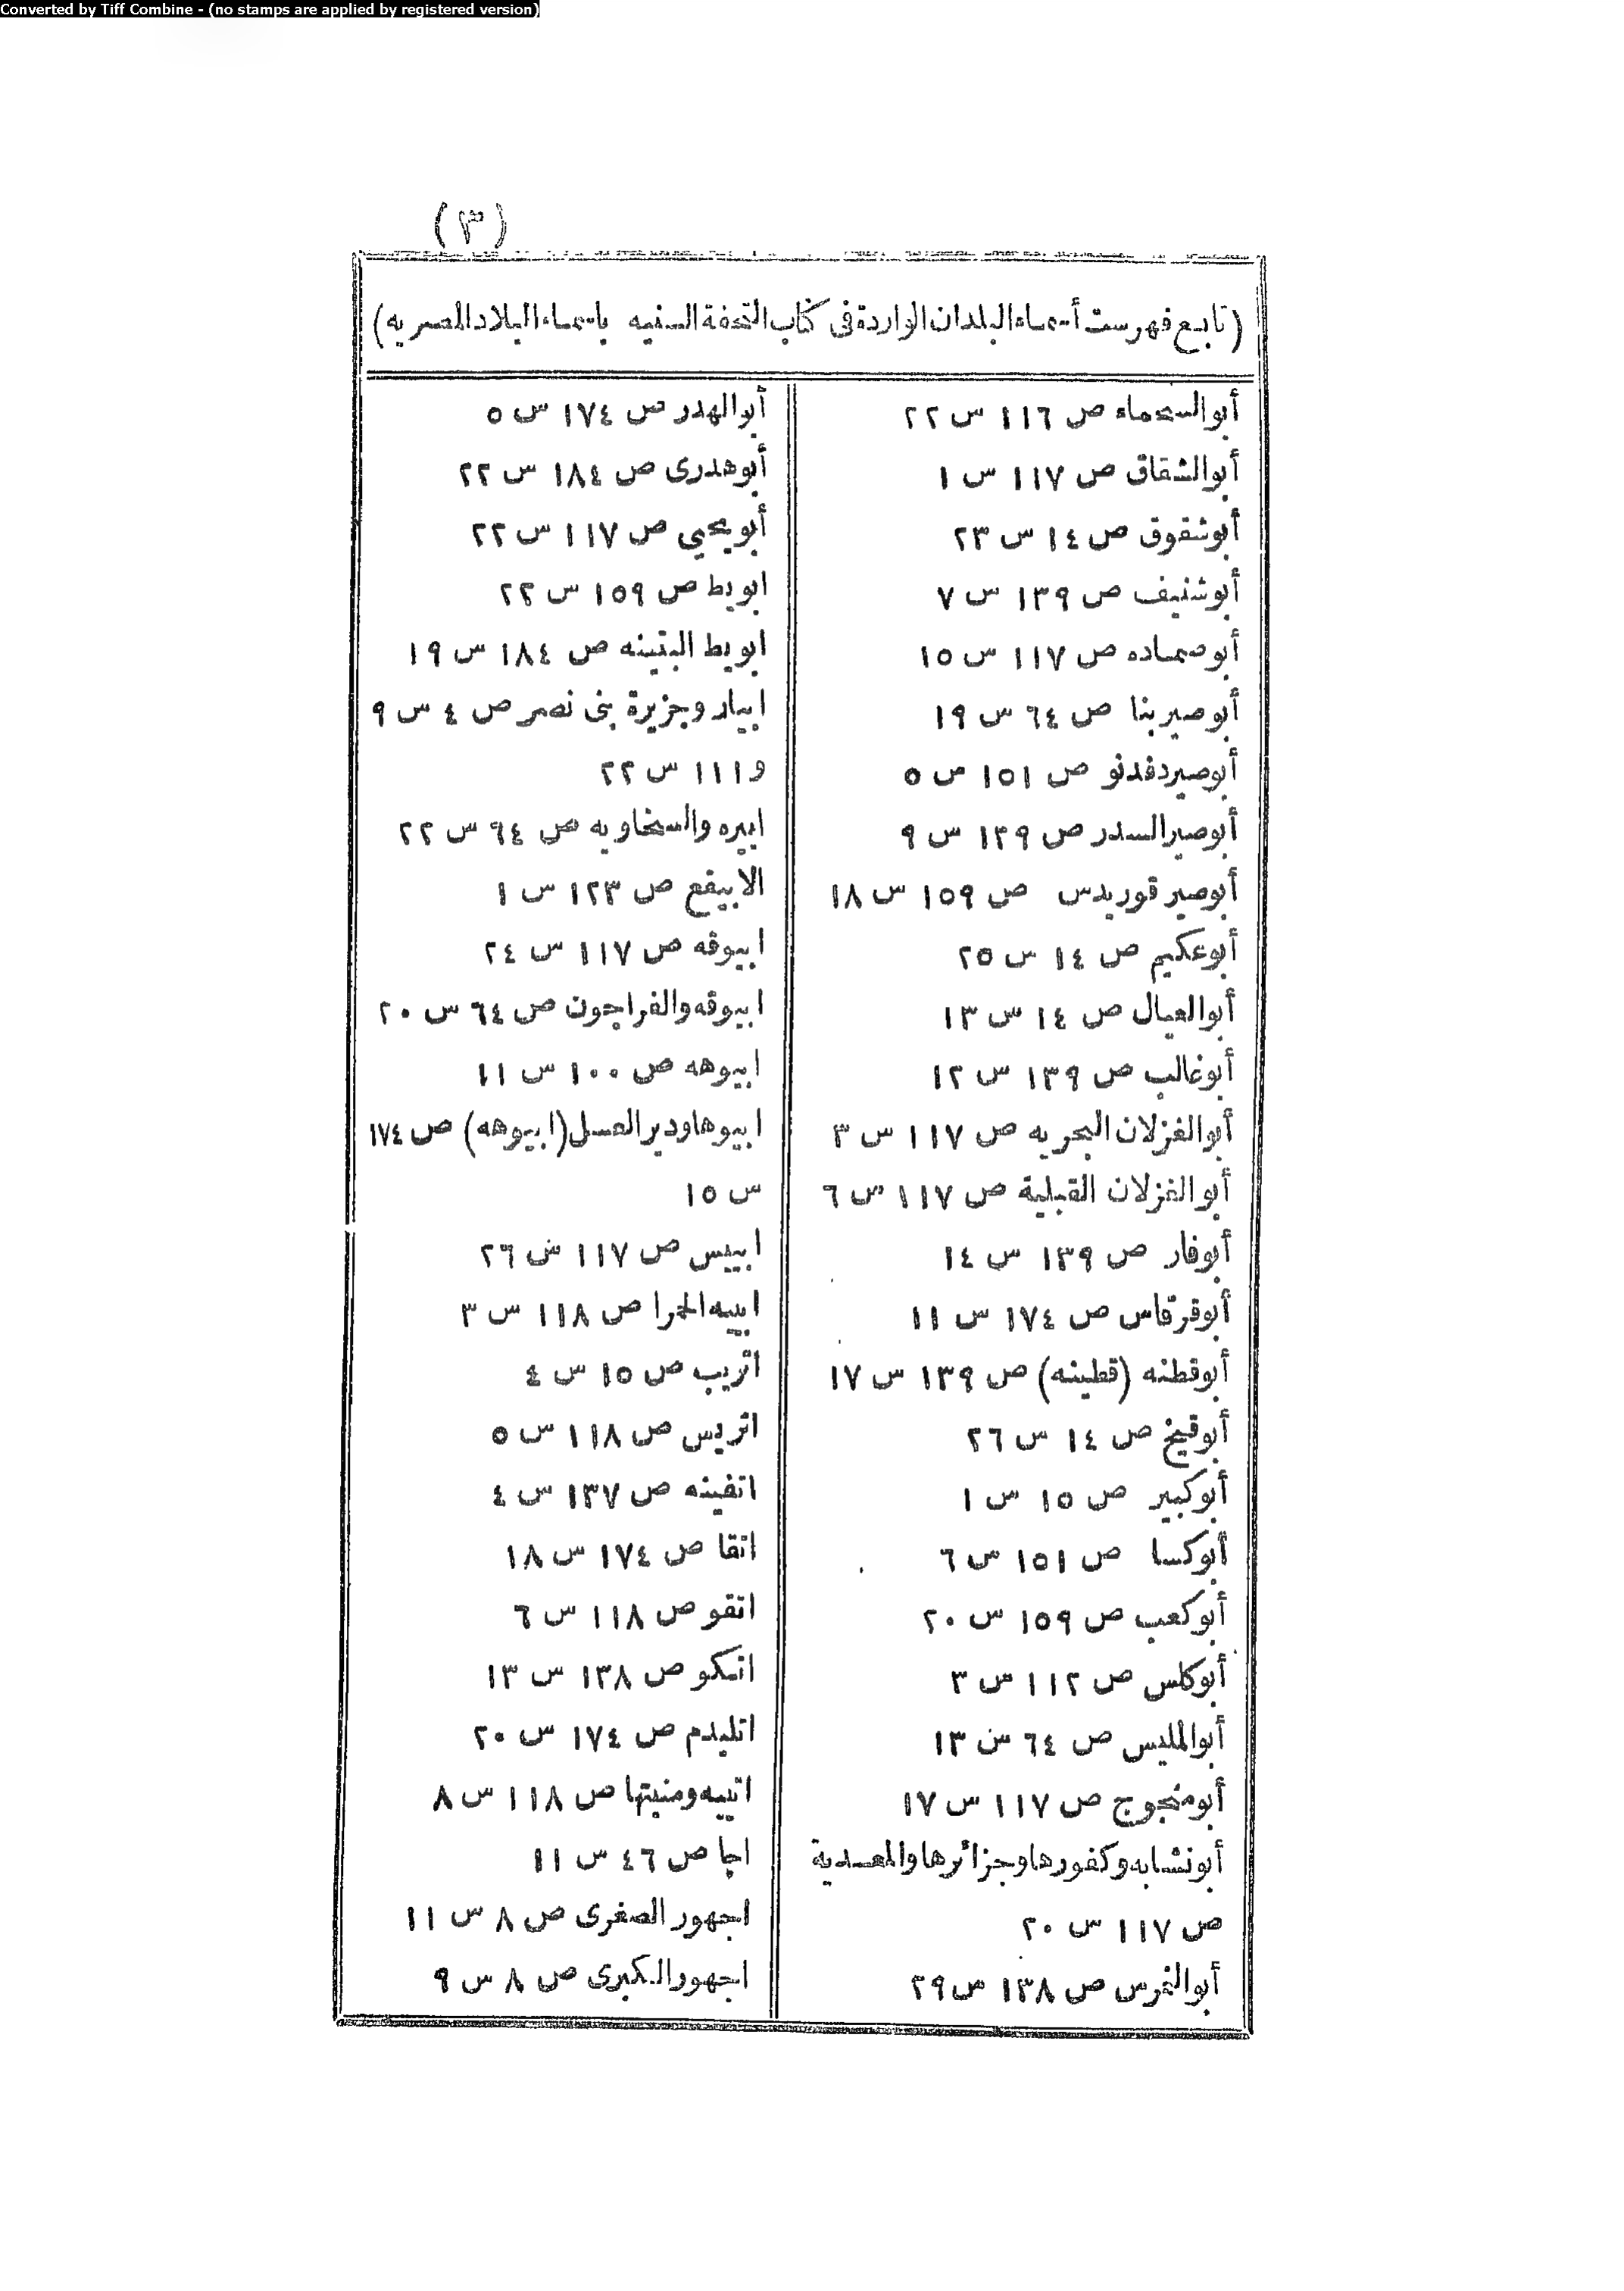 Converted by Tiff Combine - (no stamps are applied by registered version)
(٣)
(تابع فهرست أسماء البلدان الواردة فى كتاب التحفة السنيه باسماء البلاد المصريه)
أبوالسحماء ص ١١٦ س ٢٢
أبوالشقاق ص ١١٧ س ١
أبوشقوق ص ١٤ س ٢٣
أبوشنيف ص ١٣٩ س ٧
أبوصماده ص ١١٧ س ١٥
أبوصيربنا ص ٦٤ س ١٩
أبوصيردفدنو ص ١٥١ س ٥
أبوصيرالسدر ص ١٣٩ س ٩
أبوصير قوريدس ص ١٥٩ س ١٨
أبوعكيم ص ١٤ س ٢٥
أبوالعيال ص ١٤ س ١٣
أبوغالب ص ١٣٩ س ١٢
أبوالغزلان البحريه ص ١١٧ س ٣
أبوالغزلان القبلية ص ١١٧ س ٦
أبوفار ص ١٣٩ س ١٤
أبوقرقاس ص ١٧٤ س ١١
أبوقطنه (قطينه) ص ١٣٩ س ١٧
أبوقيخ ص ١٤ س ٢٦
أبوكبير ص ١٥ س ١
أبوكسا ص ١٥١ س ٦
أبوكعب ص ١٥٩ س ٢٠
أبوكلس ص ١١٢ س ٣
أبوالمليس ص ٦٤ س ١٣
أبومنجوج ص ١١٧ س ١٧
أبونشابه وكفورها وجزائرها والمعدية
ص ١١٧ س ٢٠
أبوالنمرس ص ١٣٨ س ٢٩
أبوالهدر ص ١٧٤ س ٥
أبوهدرى ص ١٨٤ س ٢٢
أبويحيى ص ١١٧ س ٢٢
ابويط ص ١٥٩ س ٢٢
ابويط البتينه ص ١٨٤ س ١٩
ابيار وجزيرة بنى نصر ص ٤ س ٩
و ١١١ س ٢٢
ابيره والسخاويه ص ٦٤ س ٢٢
الابيقع ص ١٢٣ س ١
ابيوقه ص ١١٧ س ٢٤
ابيوقه والفراجون ص ٦٤ س ٢٠
ابيوهه ص ١٠٠ س ١١
ابيوها ودير العسل (ابيوهه) ص ١٧٤
س ١٥
ابييس ص ١١٧ س ٢٦
ابيه الحمرا ص ١١٨ س ٣
اتريب ص ١٥ س ٤
اتريس ص ١١٨ س ٥
اتفينه ص ١٣٧ س ٤
اتقا ص ١٧٤ س ١٨
اتقو ص ١١٨ س ٦
اتكو ص ١٣٨ س ١٣
اتليدم ص ١٧٤ س ٢٠
اتييه ومنيتها ص ١١٨ س ٨
اجا ص ٤٦ س ١١
اجهور الصغرى ص ٨ س ١١
اجهور الكبرى ص ٨ س ٩